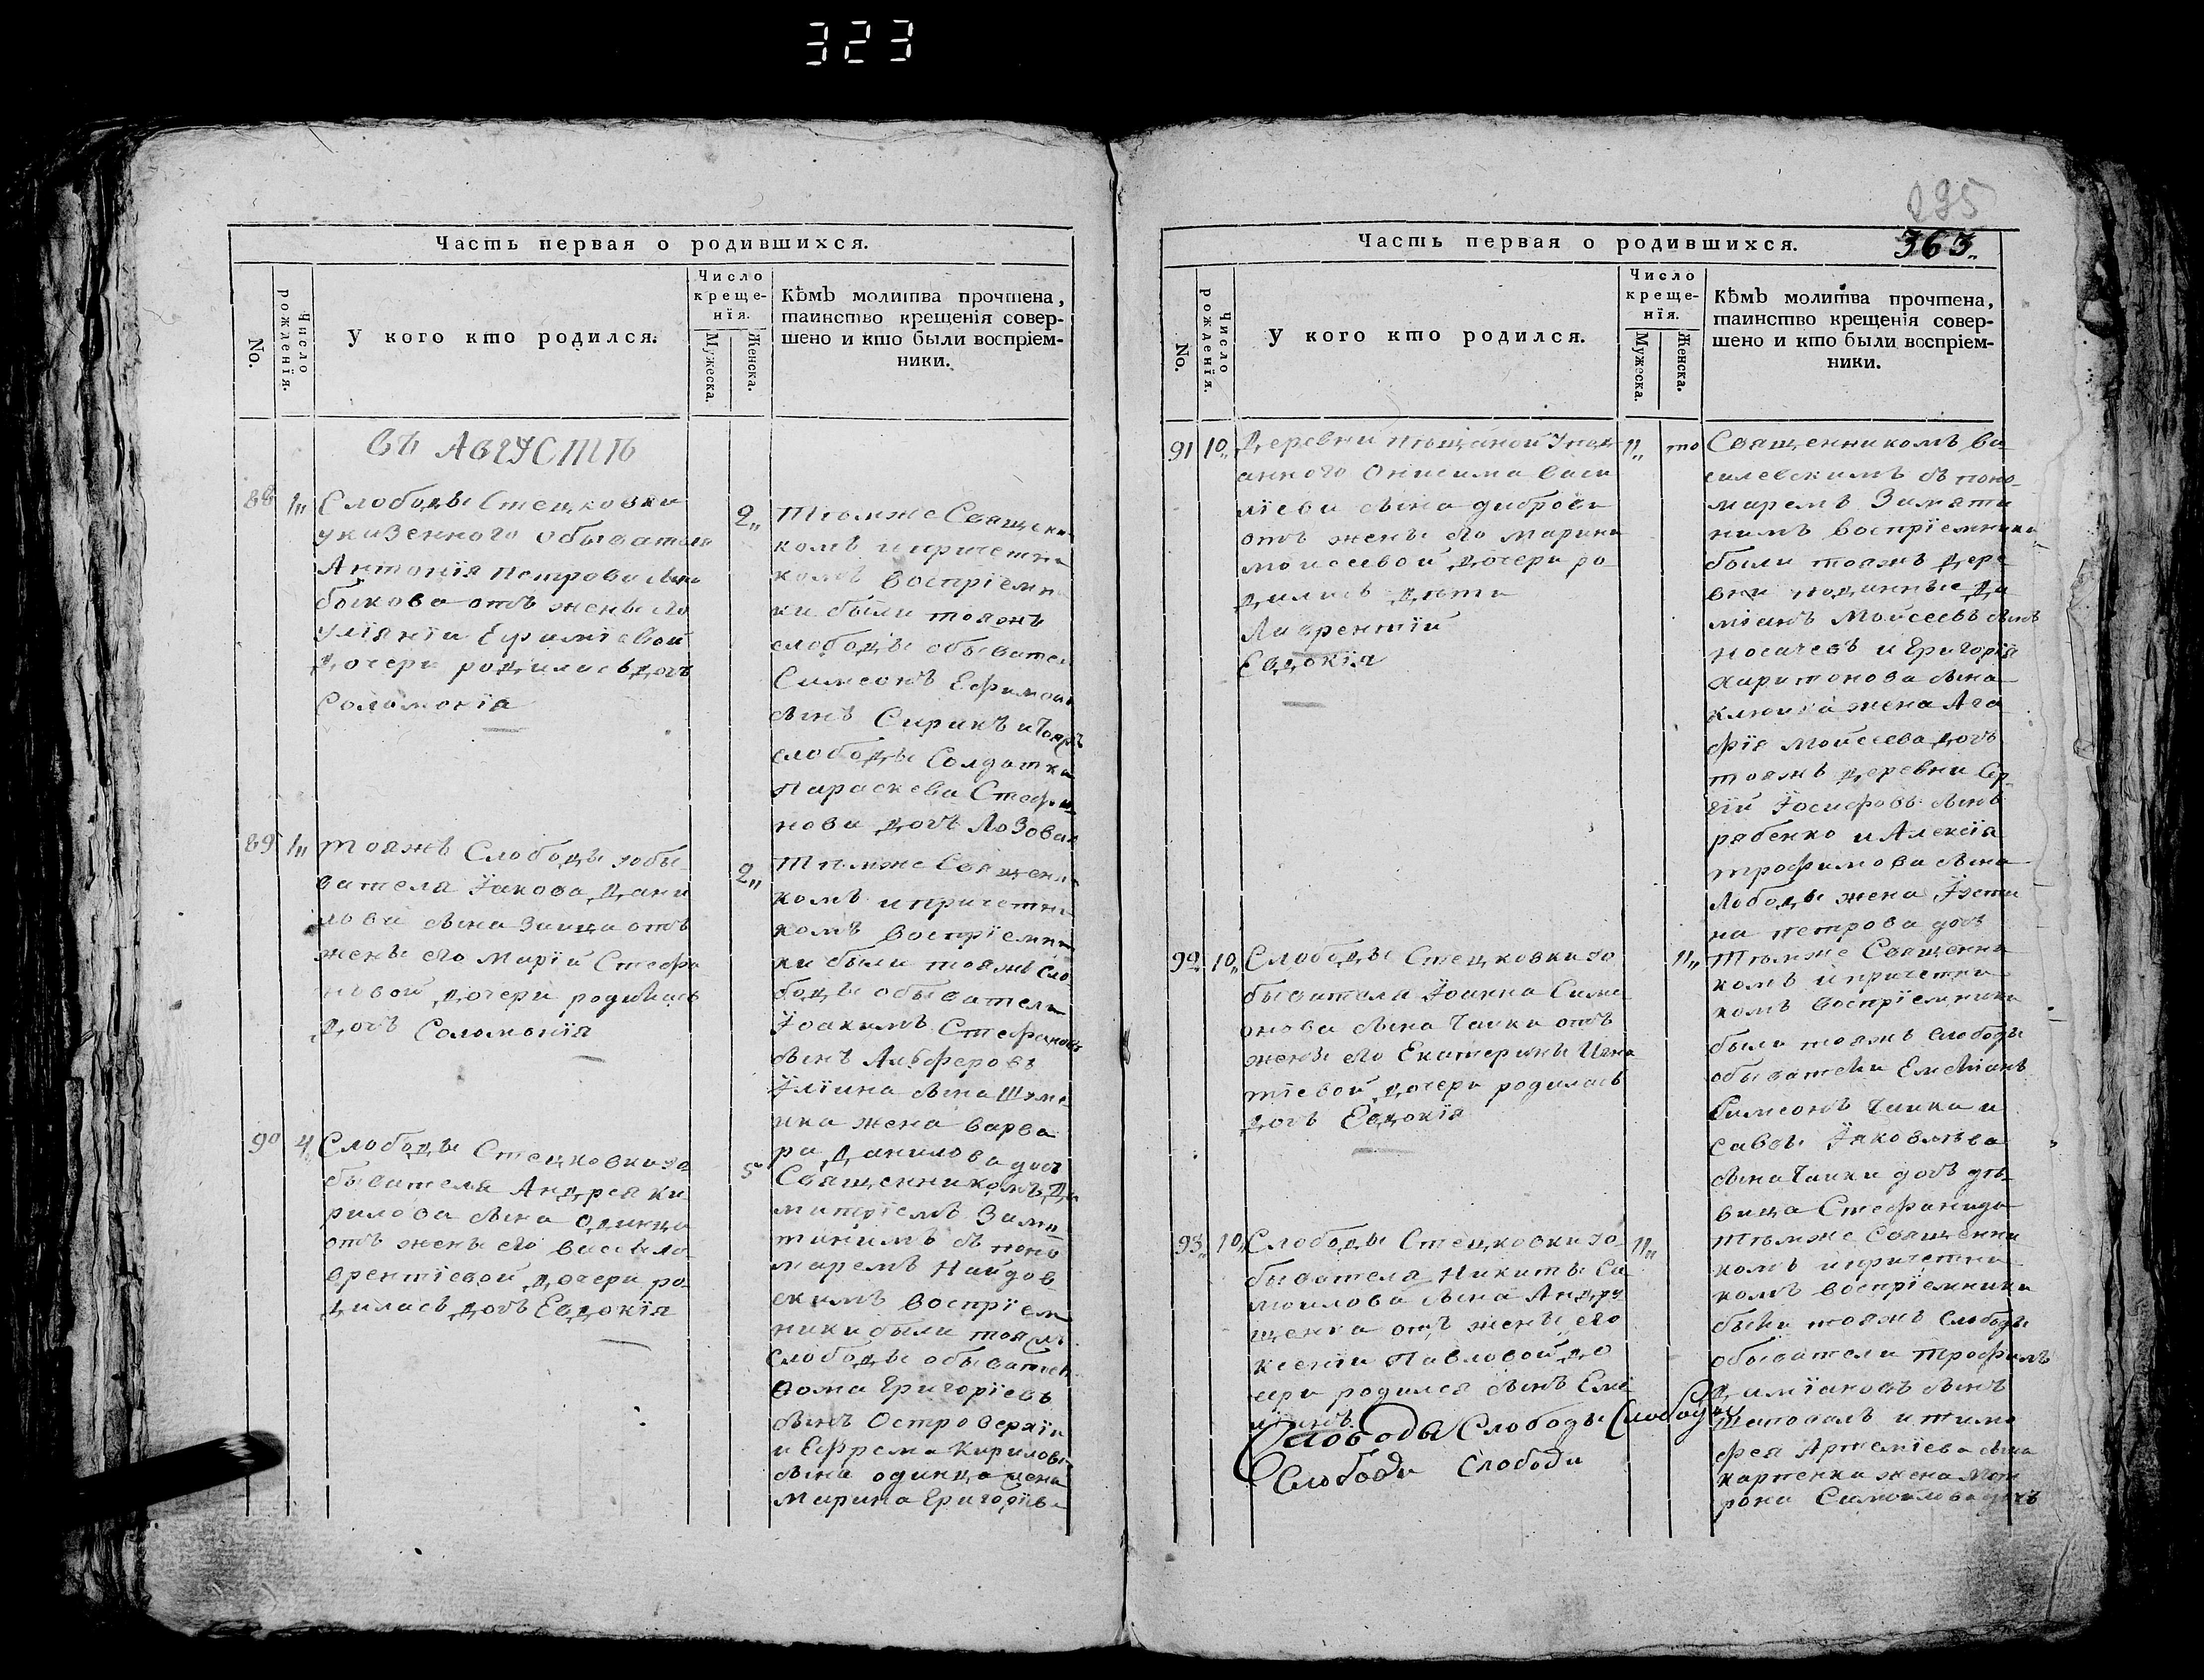 323
Часть первая о родившихся.
No.
Число рожденїя.
У кого кто родился.
Число креще-
нїя.
Мужеска.
Женска.
Кѣмъ молитва прочтена,
таинство крещенїя совер-
шено и кто были воспрїем-
ники.
въ АВГУСТѢ
88 1„
Слободы Стецковки
указенного обывателя
Антонїя Петрова сына
быкова отъ жены его
Улїянїи Ефимїевой
дочери родилась дочь
Соломонїа
2„
Тѣмже Священи
комъ и причетни
комъ воспрїемн
ки были тояжъ
слободы обывател
Симеонъ Ефимовъ
сынъ Сиринъ и тояжъ
слободы Солдатка
Параскева Стефа
нова дочь Лозовая
89 1„
тояжъ Слободы обы
вателя Їакова Дани
лова сына Заица отъ
жены его Марїи Стефа
новой дочери родилась
дочь Соломонїя
2„
Тѣмже Священи
комъ и причетни
комъ воспрїемни
ки были тояжъ сло
боды обыватели
Їоакимъ Стефановъ
сынъ Алѣферовъ
Їлїина сына
жена варва
ра Данилова дочь
90 4„
Слободы Стецковки о
бывателя Андрея Ки
рилова сына Одинца
отъ жены его
врентїевой дочери ро
дилась дочь Евдокїя
5
Священникомъ Ди
митрїемъ Замя
тинимъ съ поно
маремъ Найдов
скимъ воспрїем
ники были тояжъ
слободы обывател
Ѳома Григорїевъ
сынъ Островерхїи
и Ефрема Кирилова
сына одинца жена
Марина Григорїева
295
363„
Часть первая о родившихся.
No.
Число рожденїя.
У кого кто родился.
Число креще-
нїя.
Мужеска.
Женска.
Кѣмъ молитва прочтена,
таинство крещенїя совер-
шено и кто были воспрїем-
ники.
91 10„
Деревни Пѣщаной
Онисима Васи
лїева сына дѣброва
отъ жены его Марины
Моисеевой дочери ро
дились дѣти
Лаврентїй
Евдокїя
11„ то
Священникомъ Ва
силевскимъ съ поно-
маремъ Замяти
нимъ воспрїемники
были тояжъ дере
вни поданные Да
мїанъ Моисеевъ сынъ
Носачевъ и Григорїя
харитонова сына
жена Ага
фїя Моисеева дочь
тояжъ деревни Сер
гїй Їосифовъ сынъ
рябенко и Алексїя
трофимова сына
Лободы жена Їусти
на петрова дочь
92 10„
Слободы Стецковки о
бывателя Їоанна Симе
онова сына Чаики отъ
жены его Екатерины Игна
тїевой дочери родилась
дочь Евдокїя
11„
Тѣмже Священни
комъ и причетни
комъ воспрїемники
были тояжъ слободы
обыватели Емелїанъ
Симеонъ Чаика и
Саввы Їаковлева
сына Чаики дочь дѣ-
вица Стефанида
93„ 10„
Слободы Стецковки о-
бывателя Никиты Са
моилова сына Андру
щенка отъ жены его
Ксенїи Павловой до
чери родился сынъ Еме
лїанъ
11„
Тѣмже Священни
комъ и причетни
комъ воспрїемники
были тояжъ слободы
обыватели трофимъ
Димїановъ сынъ
Шаповалъ и тимо
фея Артемїева сына
карпенка жена Мат
рона Самоилова дочь
Слободы Слободы Слободы
Слободи Слободи